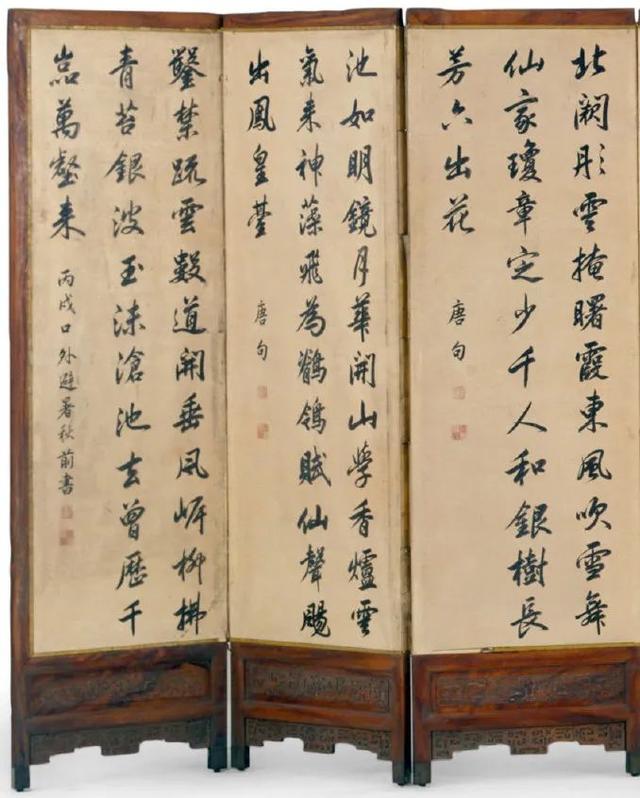 北闕彤雲掩曙霞東風吹雪舞
仙家瓊章定少千人和銀樹長
芳六出花
唐句
池如明鏡月華開山學香爐雲
氣来神藻飛為鶺鴒賦仙聲颺
出鳳皇臺
唐句
鑿禁疏雲數道開垂風岍柳拂
青苔銀波玉沫滄池去曾歷千
嵓萬壑来
丙戌口外避暑秋前書